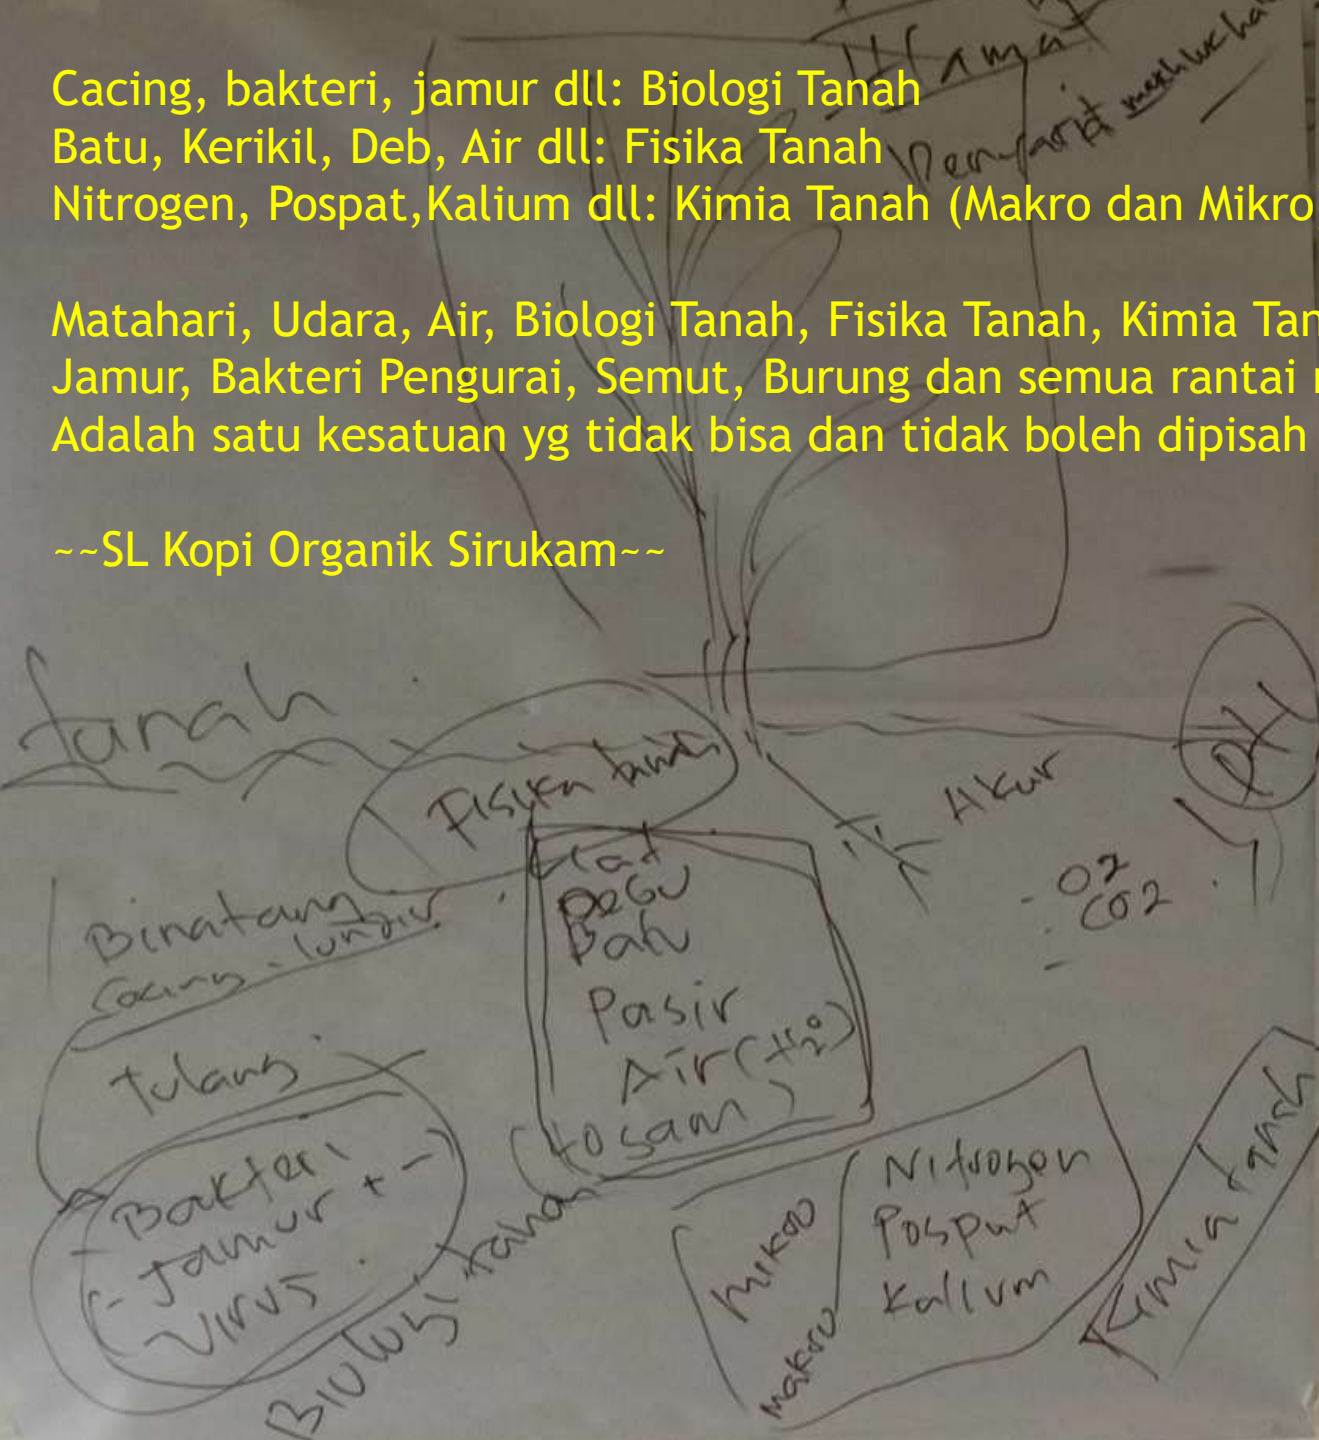 Cacing, bakteri, jamur dll: Biologi Tanah
Batu, Kerikil, Deb, Air dll: Fisika Tanah
Nitrogen, Pospat,Kalium dll: Kimia Tanah (Makro dan Mikro
Matahari, Udara, Air, Biologi Tanah, Fisika Tanah, Kimia Tan
Jamur, Bakteri Pengurai, Semut, Burung dan semua rantai
Adalah satu kesatuan yg tidak bisa dan tidak boleh dipisah
~~SL Kopi Organik Sirukam~~
Hama
tanah
PH
Fisika tanah
Akar
- O2
CO2
Binatang
Tulang
Debu
Batu
Pasir
Air (H2O)
- Bakteri
- Jamur + -
- Virus
Biologi tanah
Mikro
Makro
Nitrogen
Pospat
Kalium
Kimia tanah